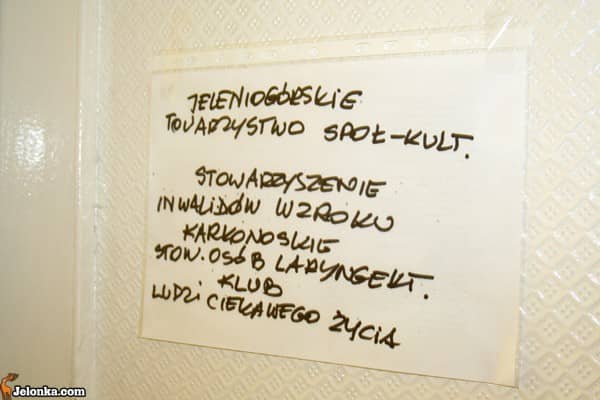 JELENIOGÓRSKIE
TOWARZYSTWO SPOŁ-KULT.
STOWARZYSZENIE
INWALIDÓW WZROKU
KARKONOSKIE
STOW. OSÓB LARYNGEKT.
KLUB
LUDZI CIEKAWEGO ŻYCIA
Jelonka.com